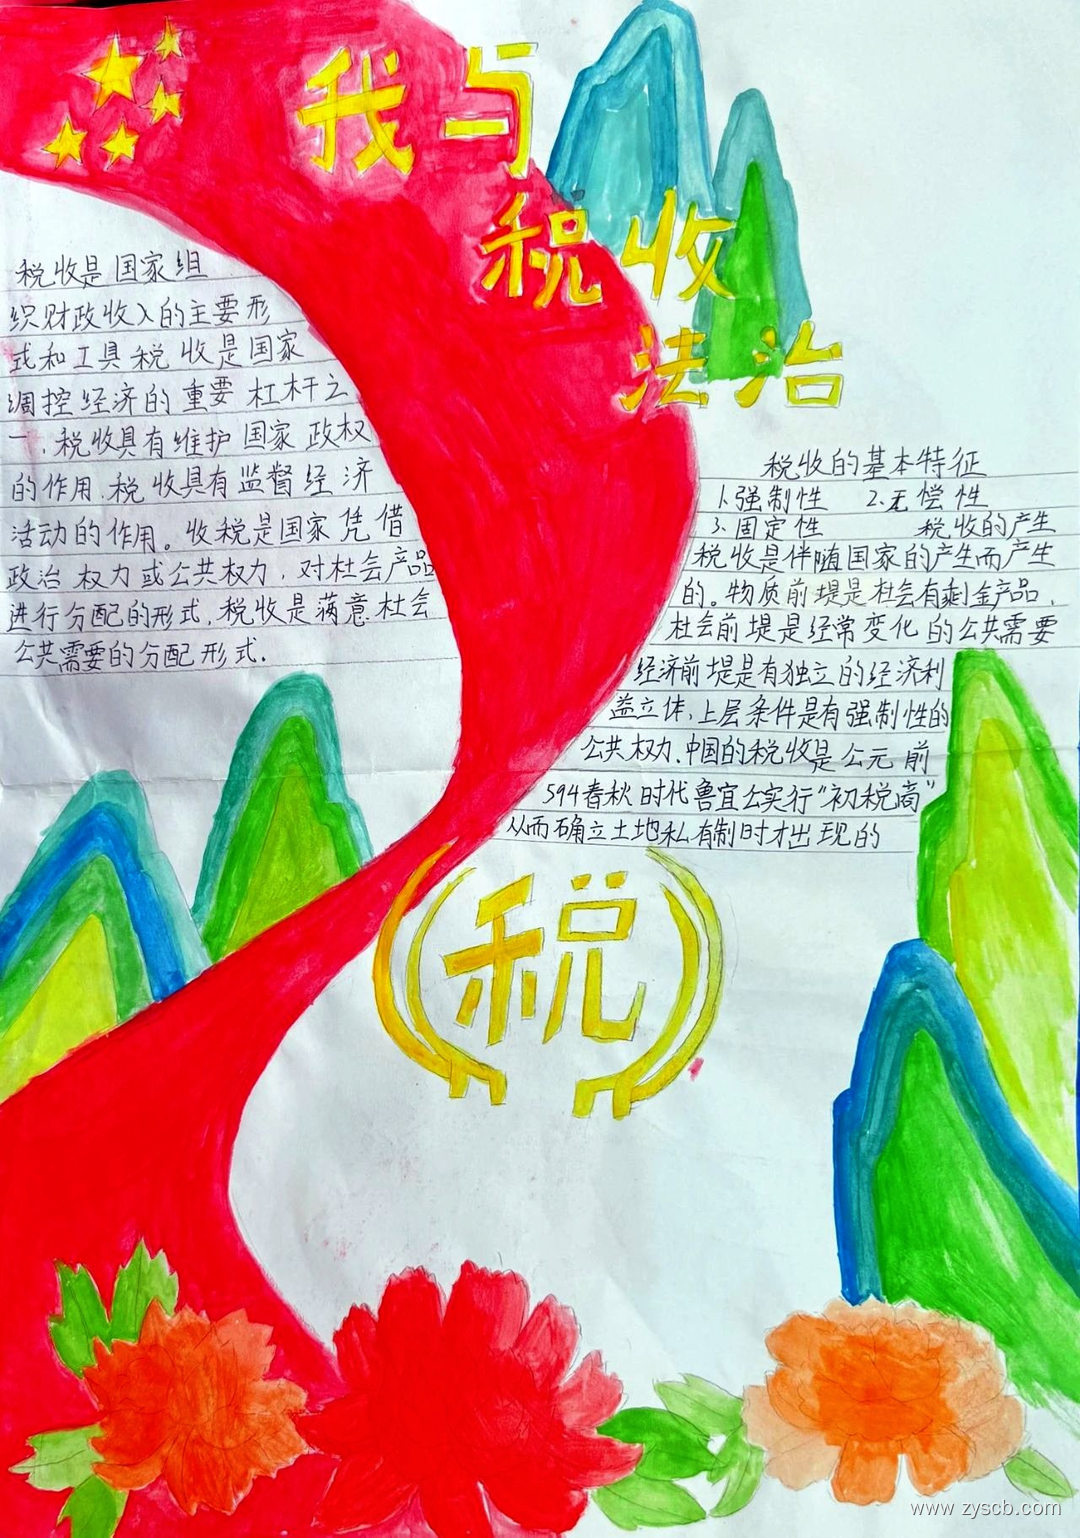 我与
税收
法治
税收是国家组
织财政收入的主要形
式和工具税收是国家
调控经济的重要杠杆之
一,税收具有维护国家政权
的作用.税收具有监督经济
活动的作用。收税是国家凭借
政治权力或公共权力,对社会产品
进行分配的形式.税收是满意社会
公共需要的分配形式.
税收的基本特征
1.强制性 2.无偿性
3.固定性 税收的产生
税收是伴随国家的产生而产生
的。物质前堤是社会有剩余产品,
社会前堤是经常变化的公共需要
经济前堤是有独立的经济利
益立体,上层条件是有强制性的
公共权力.中国的税收是公元前
594春秋时代鲁宣公实行“初税亩”
从而确立土地私有制时才出现的
税
www.zyscb.com